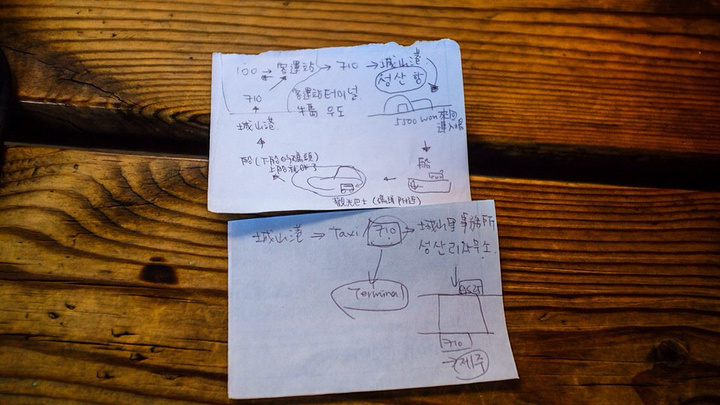 100 → 客運站 → 710 → 城山港
성산항
710
客運站 터미널
牛島 우도
城山港
5500 won 來回
船(下船的碼頭)
船
觀光巴士
城山港 → Taxi / 710 → 城山里事務所
성산리사무소
Terminal
GS25
710
→ 제주